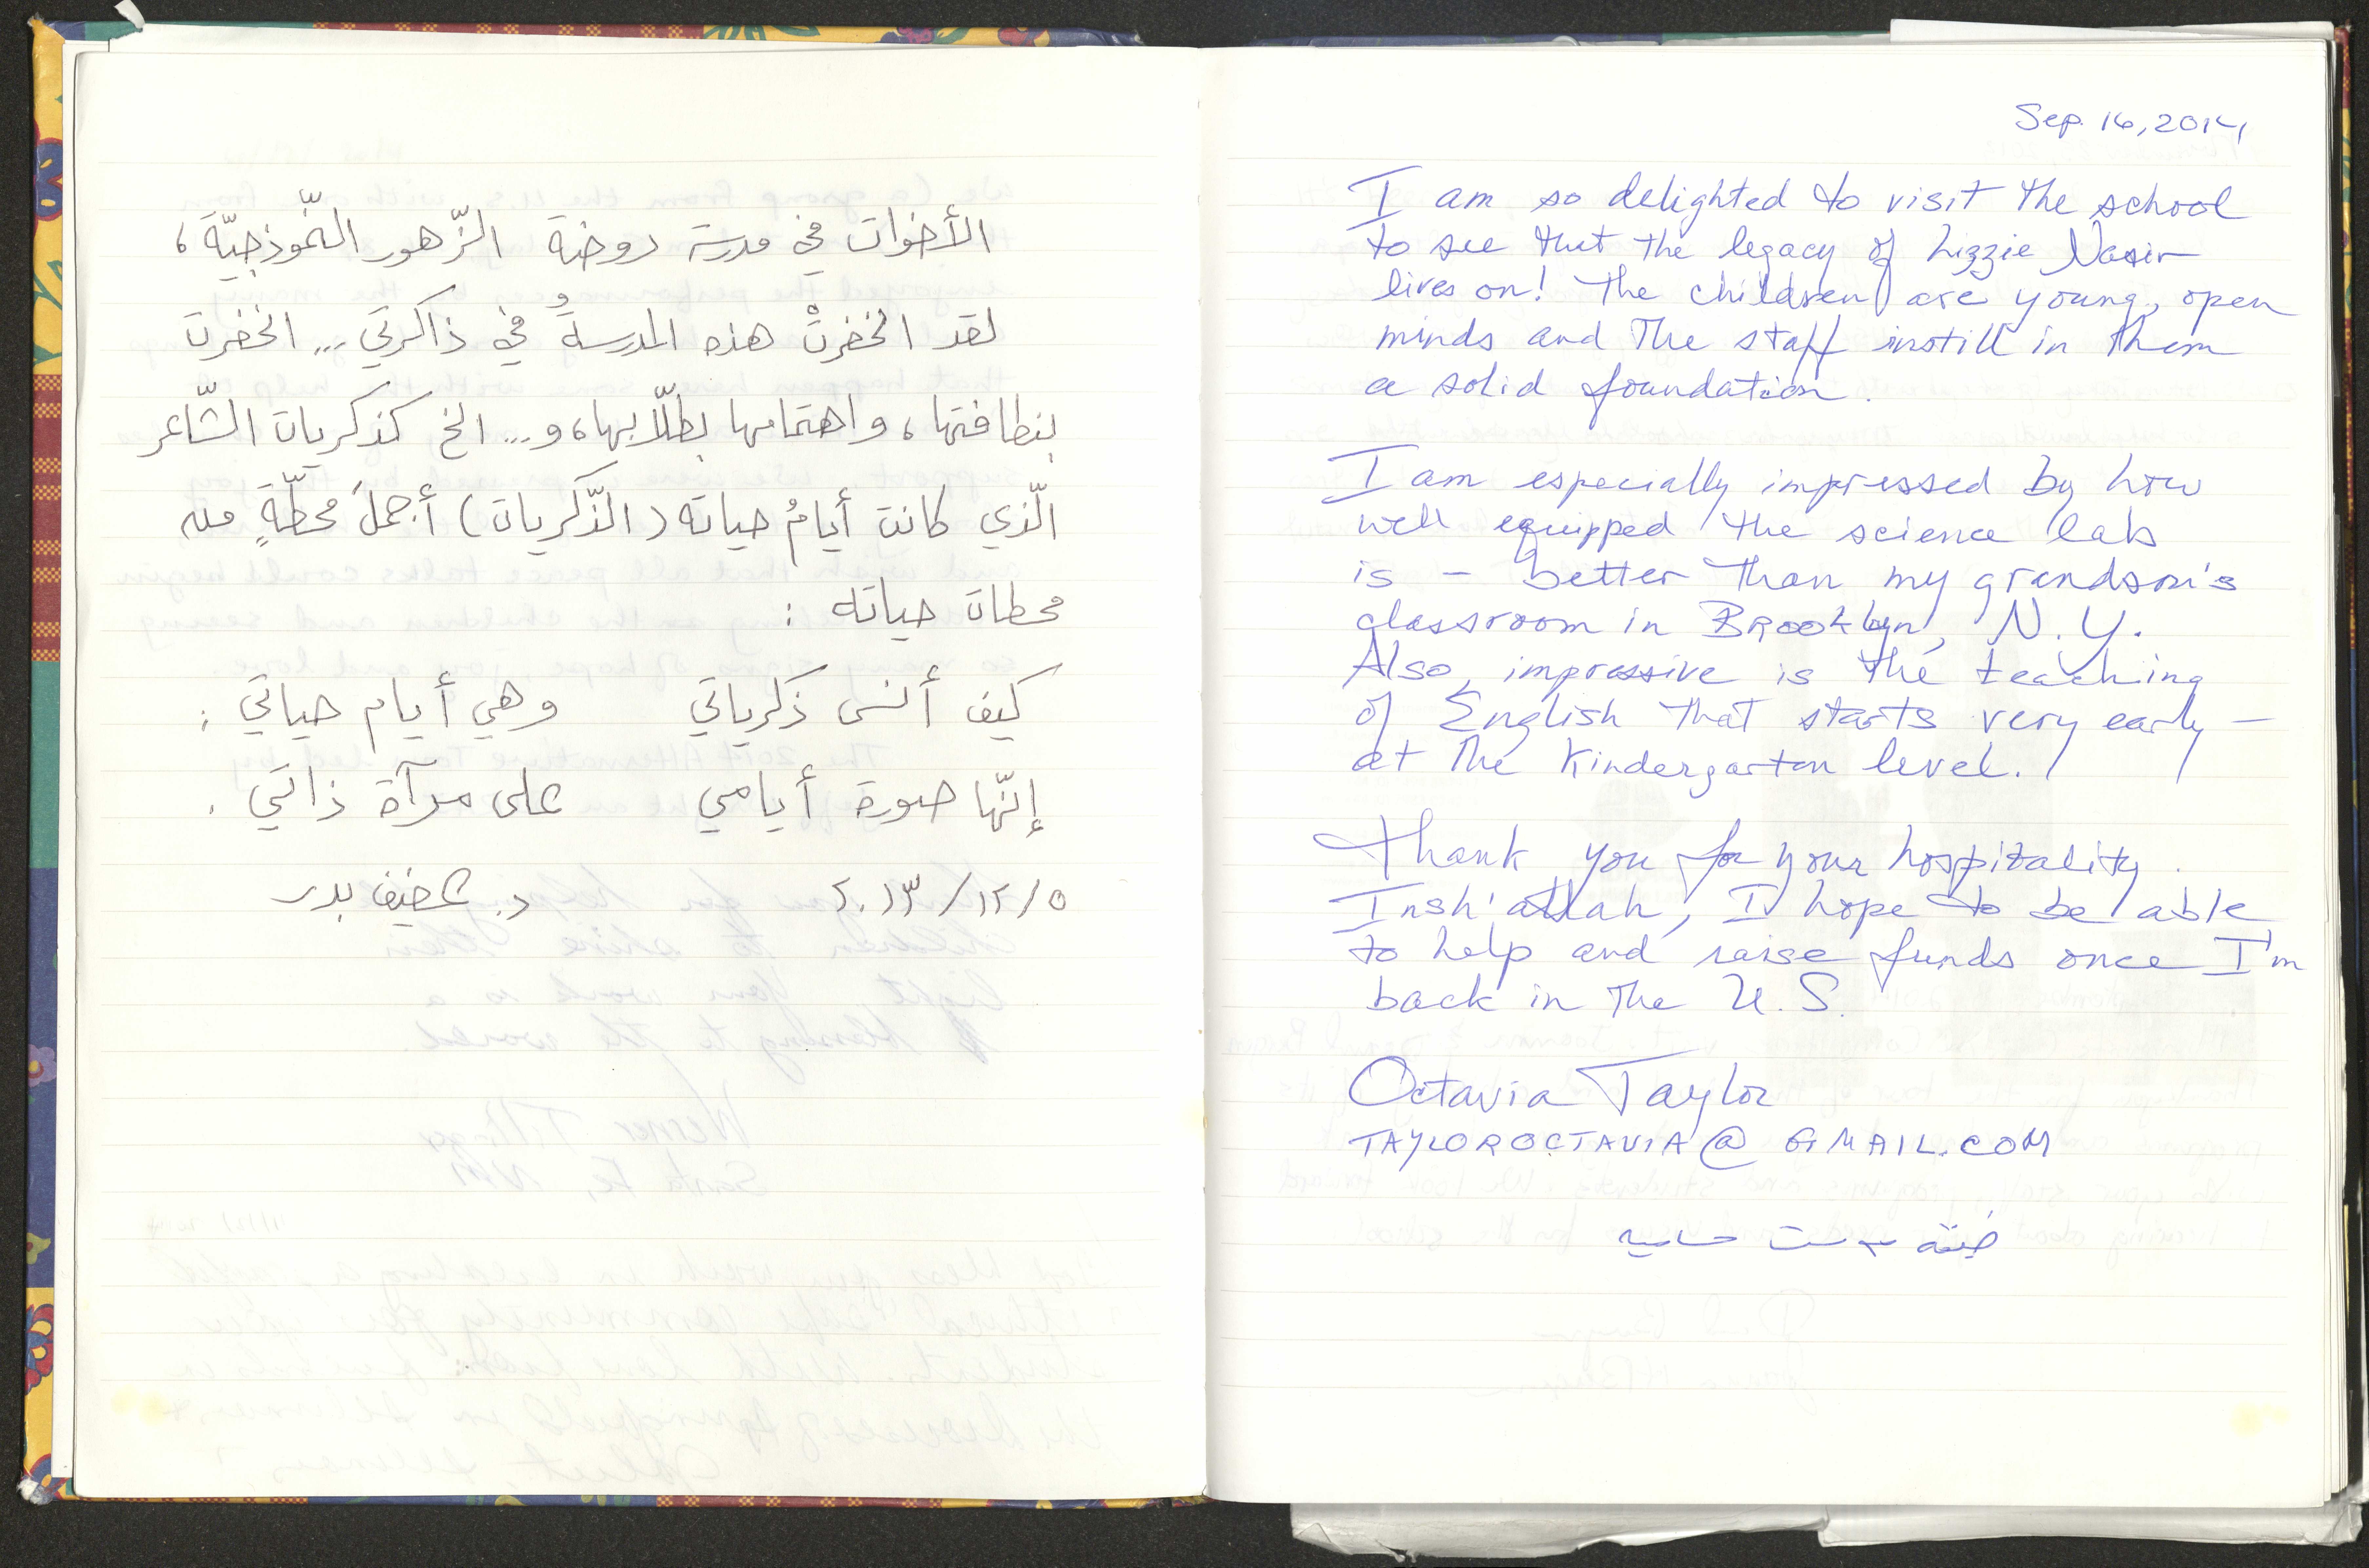 الأخوات في مدرسة روضة الزّهور النّموذجيّة،
لقد انحفرتْ هذه المدرسةُ في ذاكرتي ... انحفرت
بنظافتها، واهتمامها بطلّابها، و... الخ كذكريات الشّاعر
الّذي كانت أيامُ حياته (الذّكريات) أجملَ محطّةٍ من
محطات حياته :
كيف أنسى ذكرياتي وهي أيام حياتي ;
إنّها صورة أيامي على مرآة ذاتي .
٢٠١٣/١٢/٥ د. عفيف بدر
Sep. 16, 2014
I am so delighted to visit the school
to see that the legacy of Lizzie Nasir
lives on! The children are young, open
minds and the staff instill in them
a solid foundation.
I am especially impressed by how
well equipped the science lab
is – better than my grandson's
classroom in Brooklyn, N.Y.
Also, impressive is the teaching
of English that starts very early –
at the Kindergarten level.
Thank you for your hospitality.
Insh'allah, I hope to be able
to help and raise funds once I'm
back in the U.S.
Octavia Taylor
TAYLOROCTAVIA@GMAIL.COM